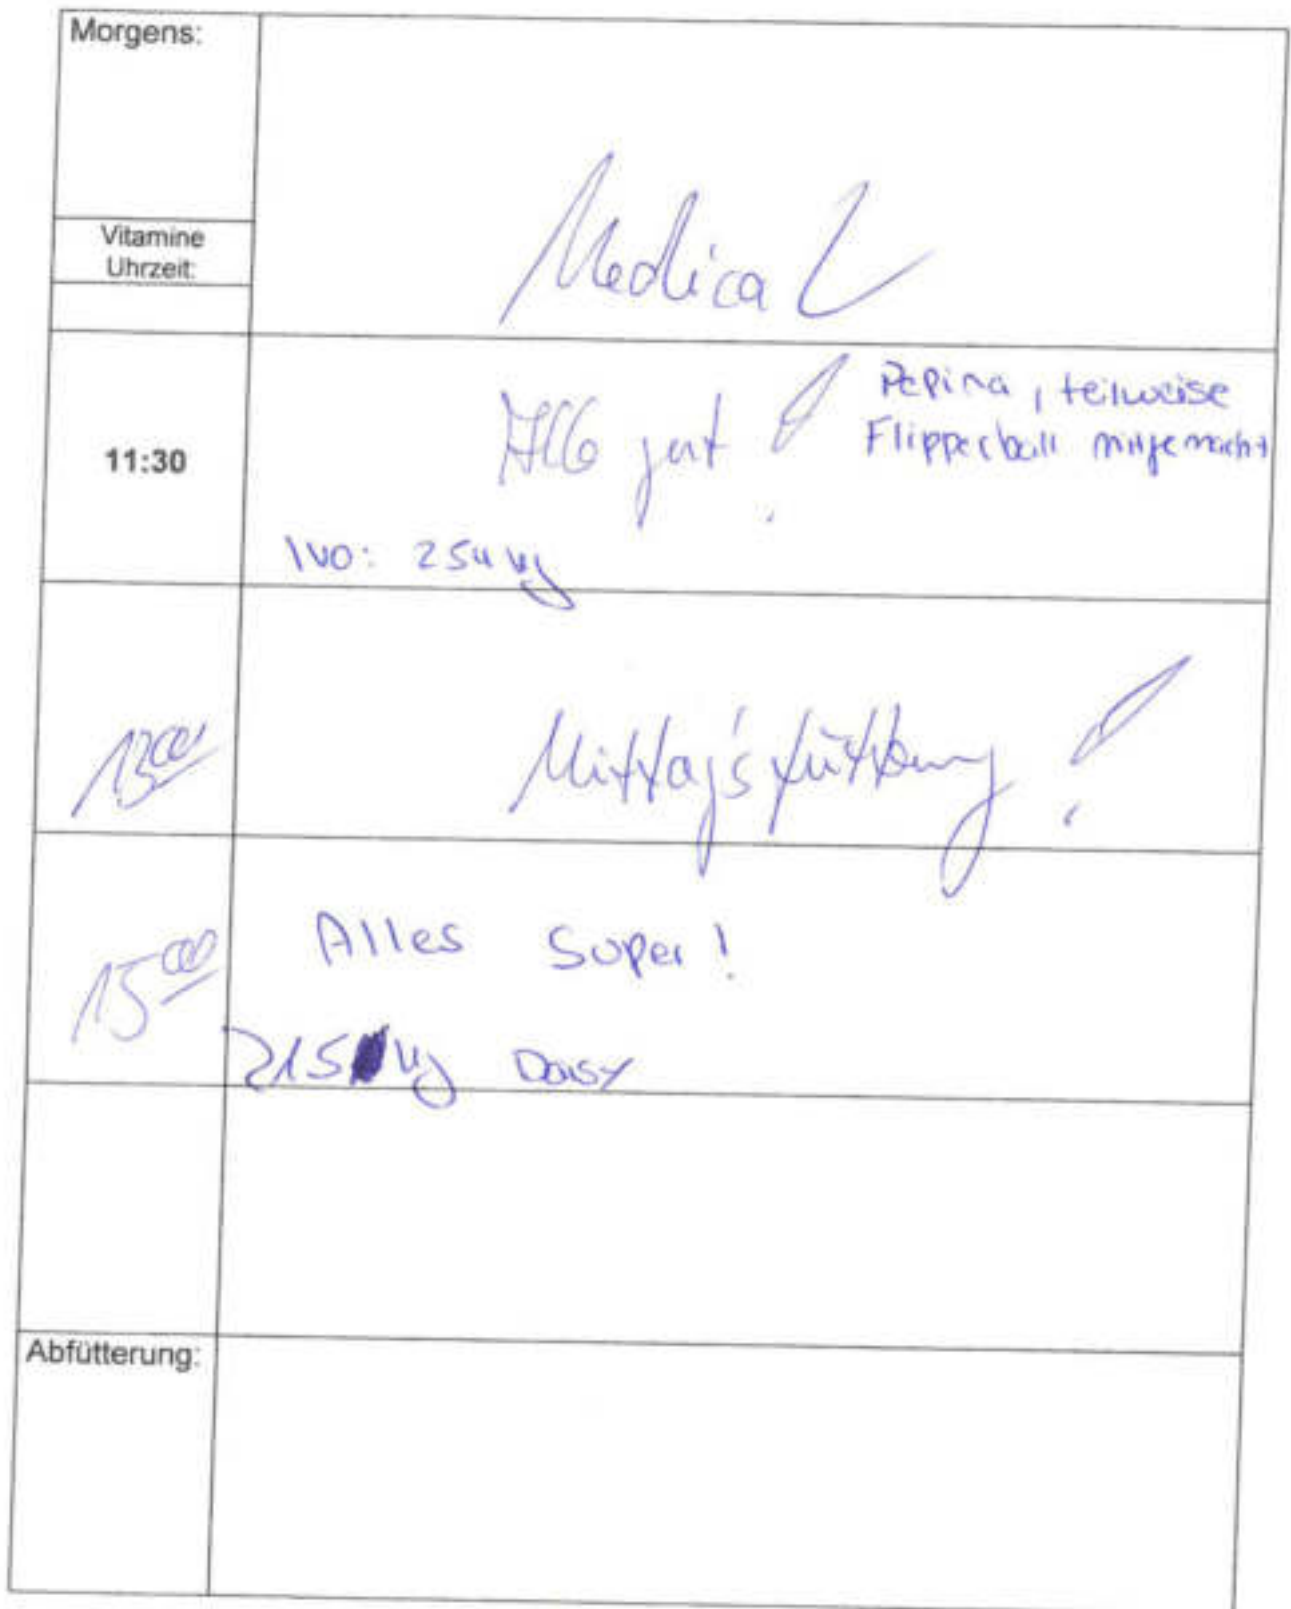 Morgens:
Vitamine
Uhrzeit:
Medical
11:30
gut !
Pepina, teilweise
Flipperball mitgemacht
Ivo: 254 kg
13:00
Mittag's fütterung !
15:00
Alles Super!
215 kg Daisy
Abfütterung: